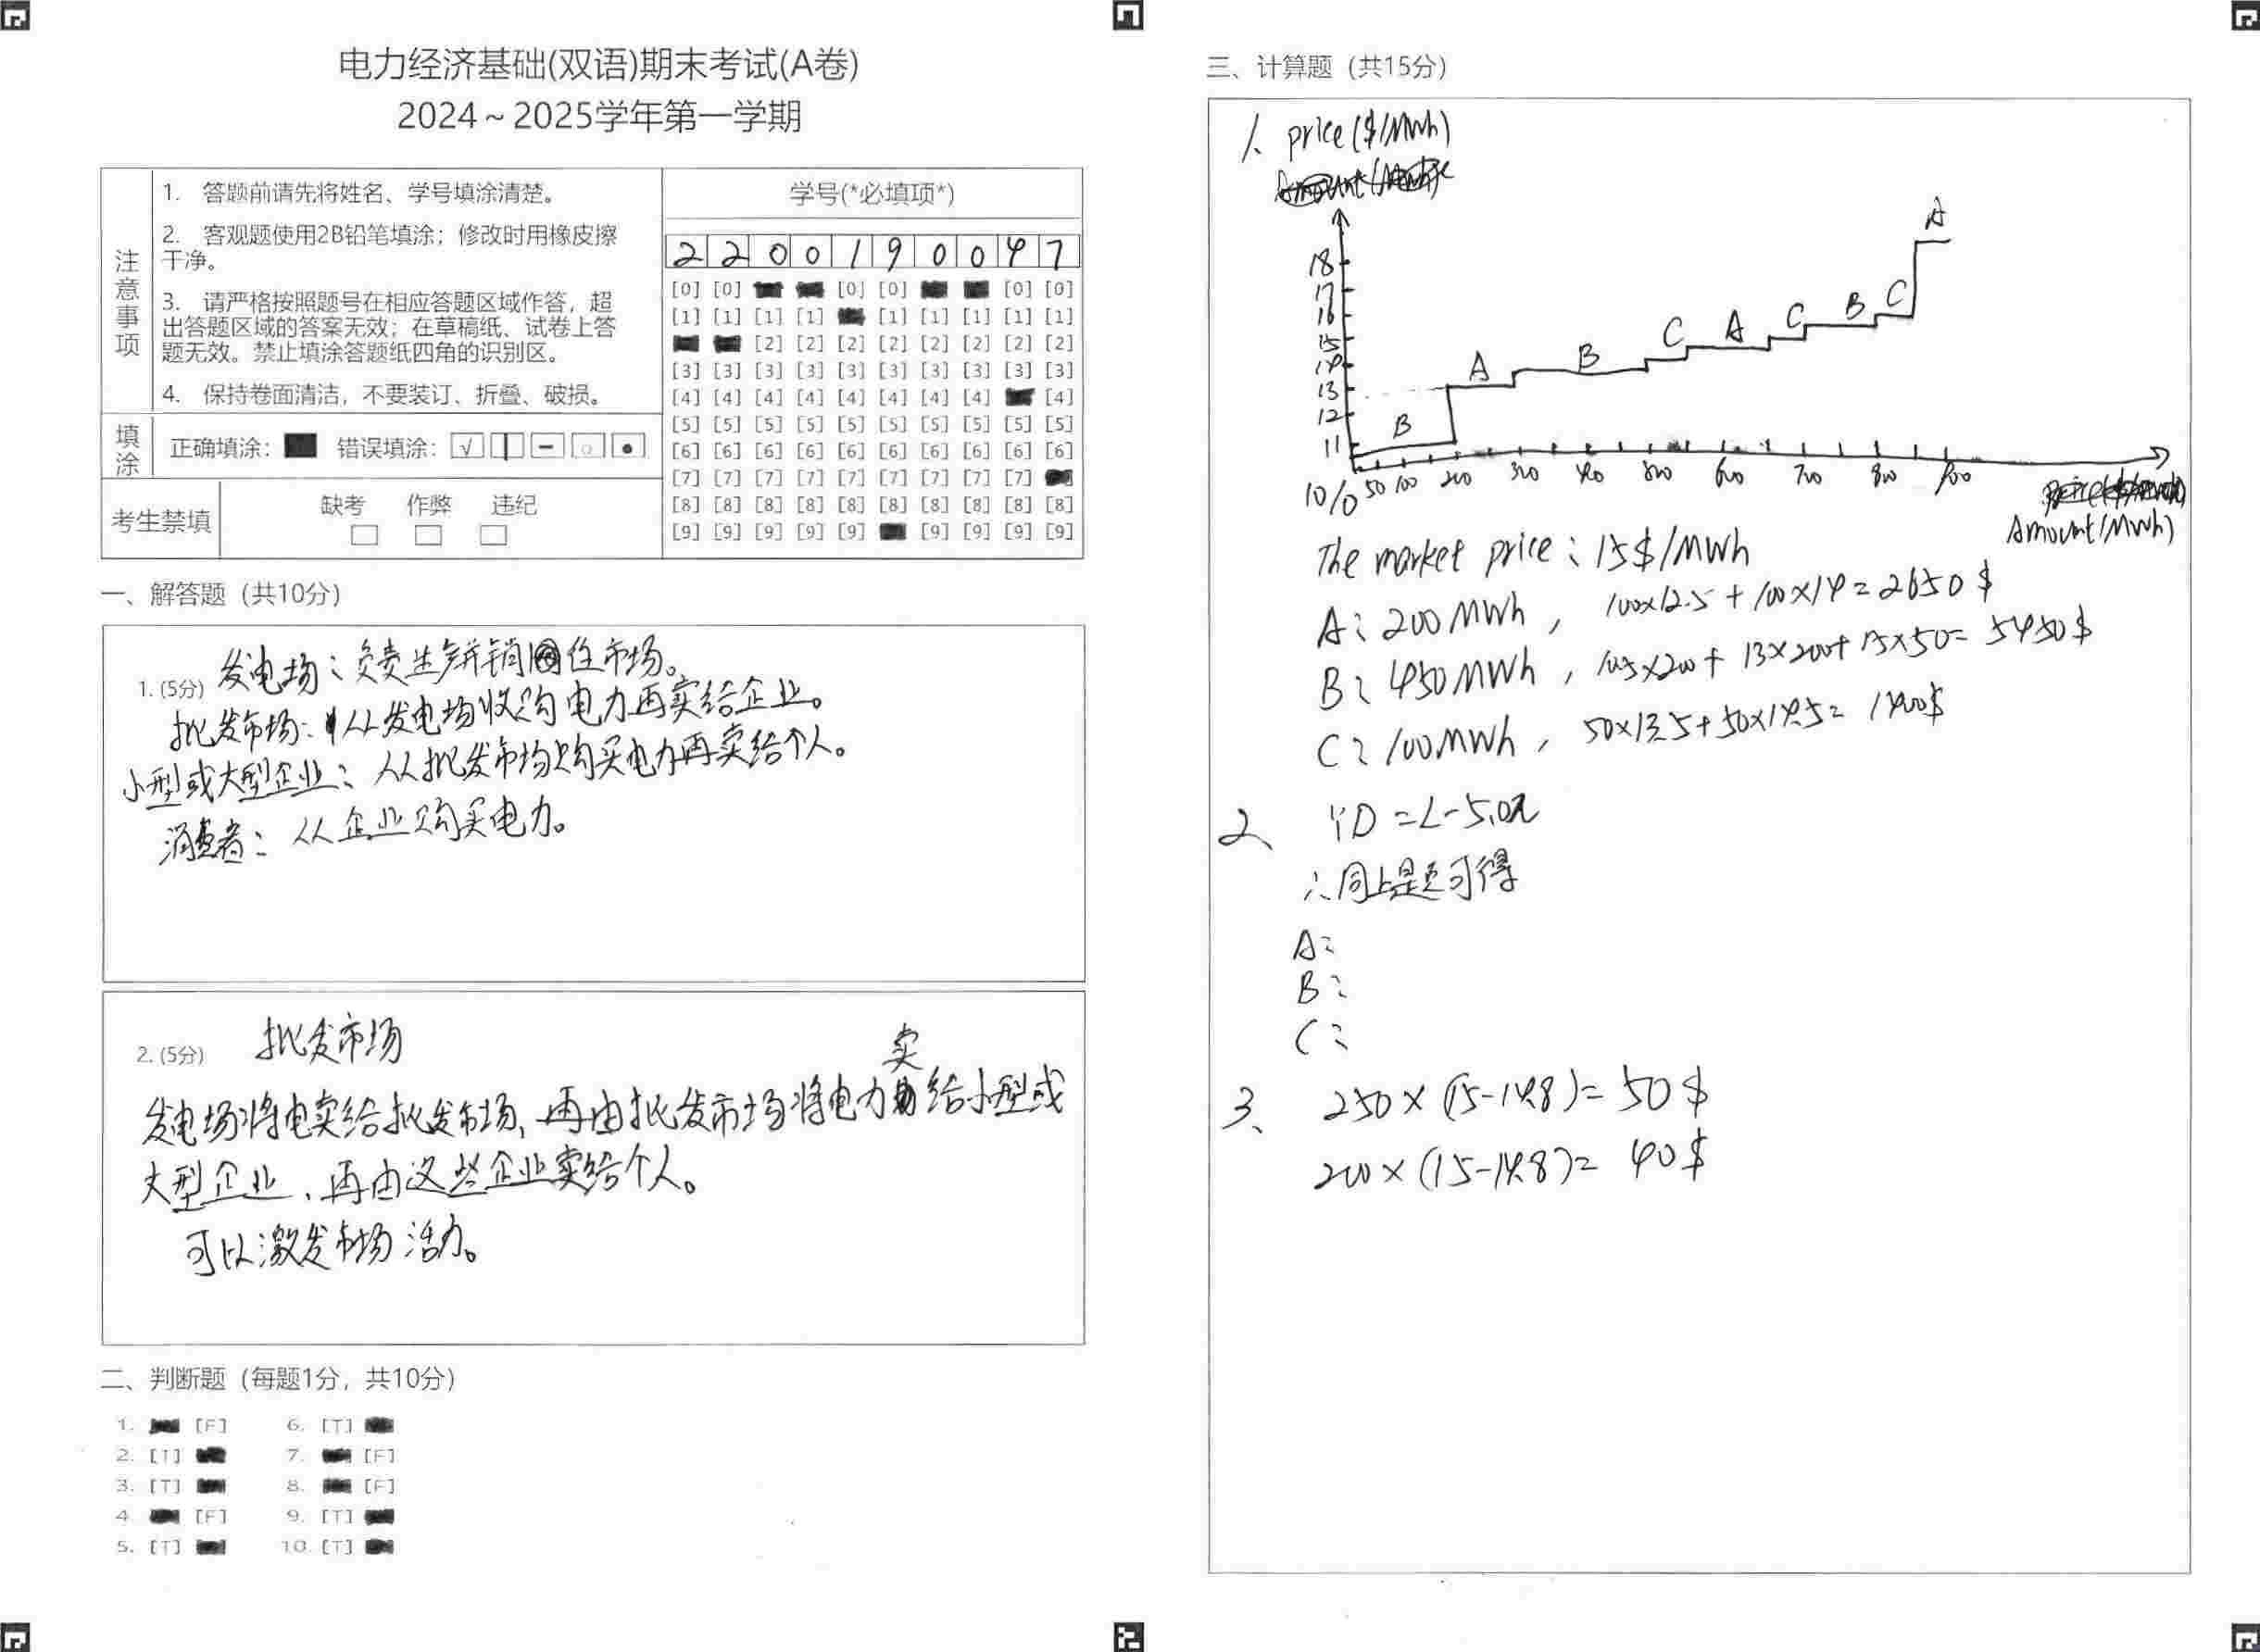 电力经济基础(双语)期末考试(A卷)
2024~2025学年第一学期
注意事项
1. 答题前请先将姓名、学号填涂清楚。
2. 客观题使用2B铅笔填涂；修改时用橡皮擦
干净。
3. 请严格按照题号在相应答题区域作答，超
出答题区域的答案无效；在草稿纸、试卷上答
题无效。禁止填涂答题纸四角的识别区。
4. 保持卷面清洁，不要装订、折叠、破损。
填涂
正确填涂： 错误填涂：
考生禁填
缺考 作弊 违纪
学号(*必填项*)
2 2 0 0 1 9 0 0 4 7
[0] [0] [0] [0] [0] [0]
[1] [1] [1] [1] [1] [1] [1] [1] [1]
[2] [2] [2] [2] [2] [2] [2] [2]
[3] [3] [3] [3] [3] [3] [3] [3] [3] [3]
[4] [4] [4] [4] [4] [4] [4] [4] [4]
[5] [5] [5] [5] [5] [5] [5] [5] [5] [5]
[6] [6] [6] [6] [6] [6] [6] [6] [6] [6]
[7] [7] [7] [7] [7] [7] [7] [7] [7]
[8] [8] [8] [8] [8] [8] [8] [8] [8] [8]
[9] [9] [9] [9] [9] [9] [9] [9] [9]
一、解答题（共10分）
1. (5分) 发电场：负责生产并销往市场。
批发市场：从发电场收购电力再卖给企业。
小型或大型企业：从批发市场购买电力再卖给个人。
消费者：从企业购买电力。
2. (5分) 批发市场
发电场将电卖给批发市场，再由批发市场将电力卖给小型或
大型企业，再由这些企业卖给个人。
可以激发市场活力。
二、判断题（每题1分，共10分）
1. [F] 6. [T]
2. [T] 7. [F]
3. [T] 8. [F]
4. [F] 9. [T]
5. [T] 10. [T]
三、计算题（共15分）
1、price($/MWh)
18
17
16
15
14
13
12
11
10
B A B C A C B C A
0 50 100 200 300 400 500 600 700 800 900
Amount(MWh)
The market price：15$/MWh
A：200MWh， 100×12.5+100×14=2650$
B：450MWh， 10.5×200+13×200+15×50=5450$
C：100MWh， 50×13.5+50×14.5=1400$
2、 YD=L-5.0π
∴同上题可得
A：
B：
C：
3、 250×(15-14.8)=50$
200×(15-14.8)=40$